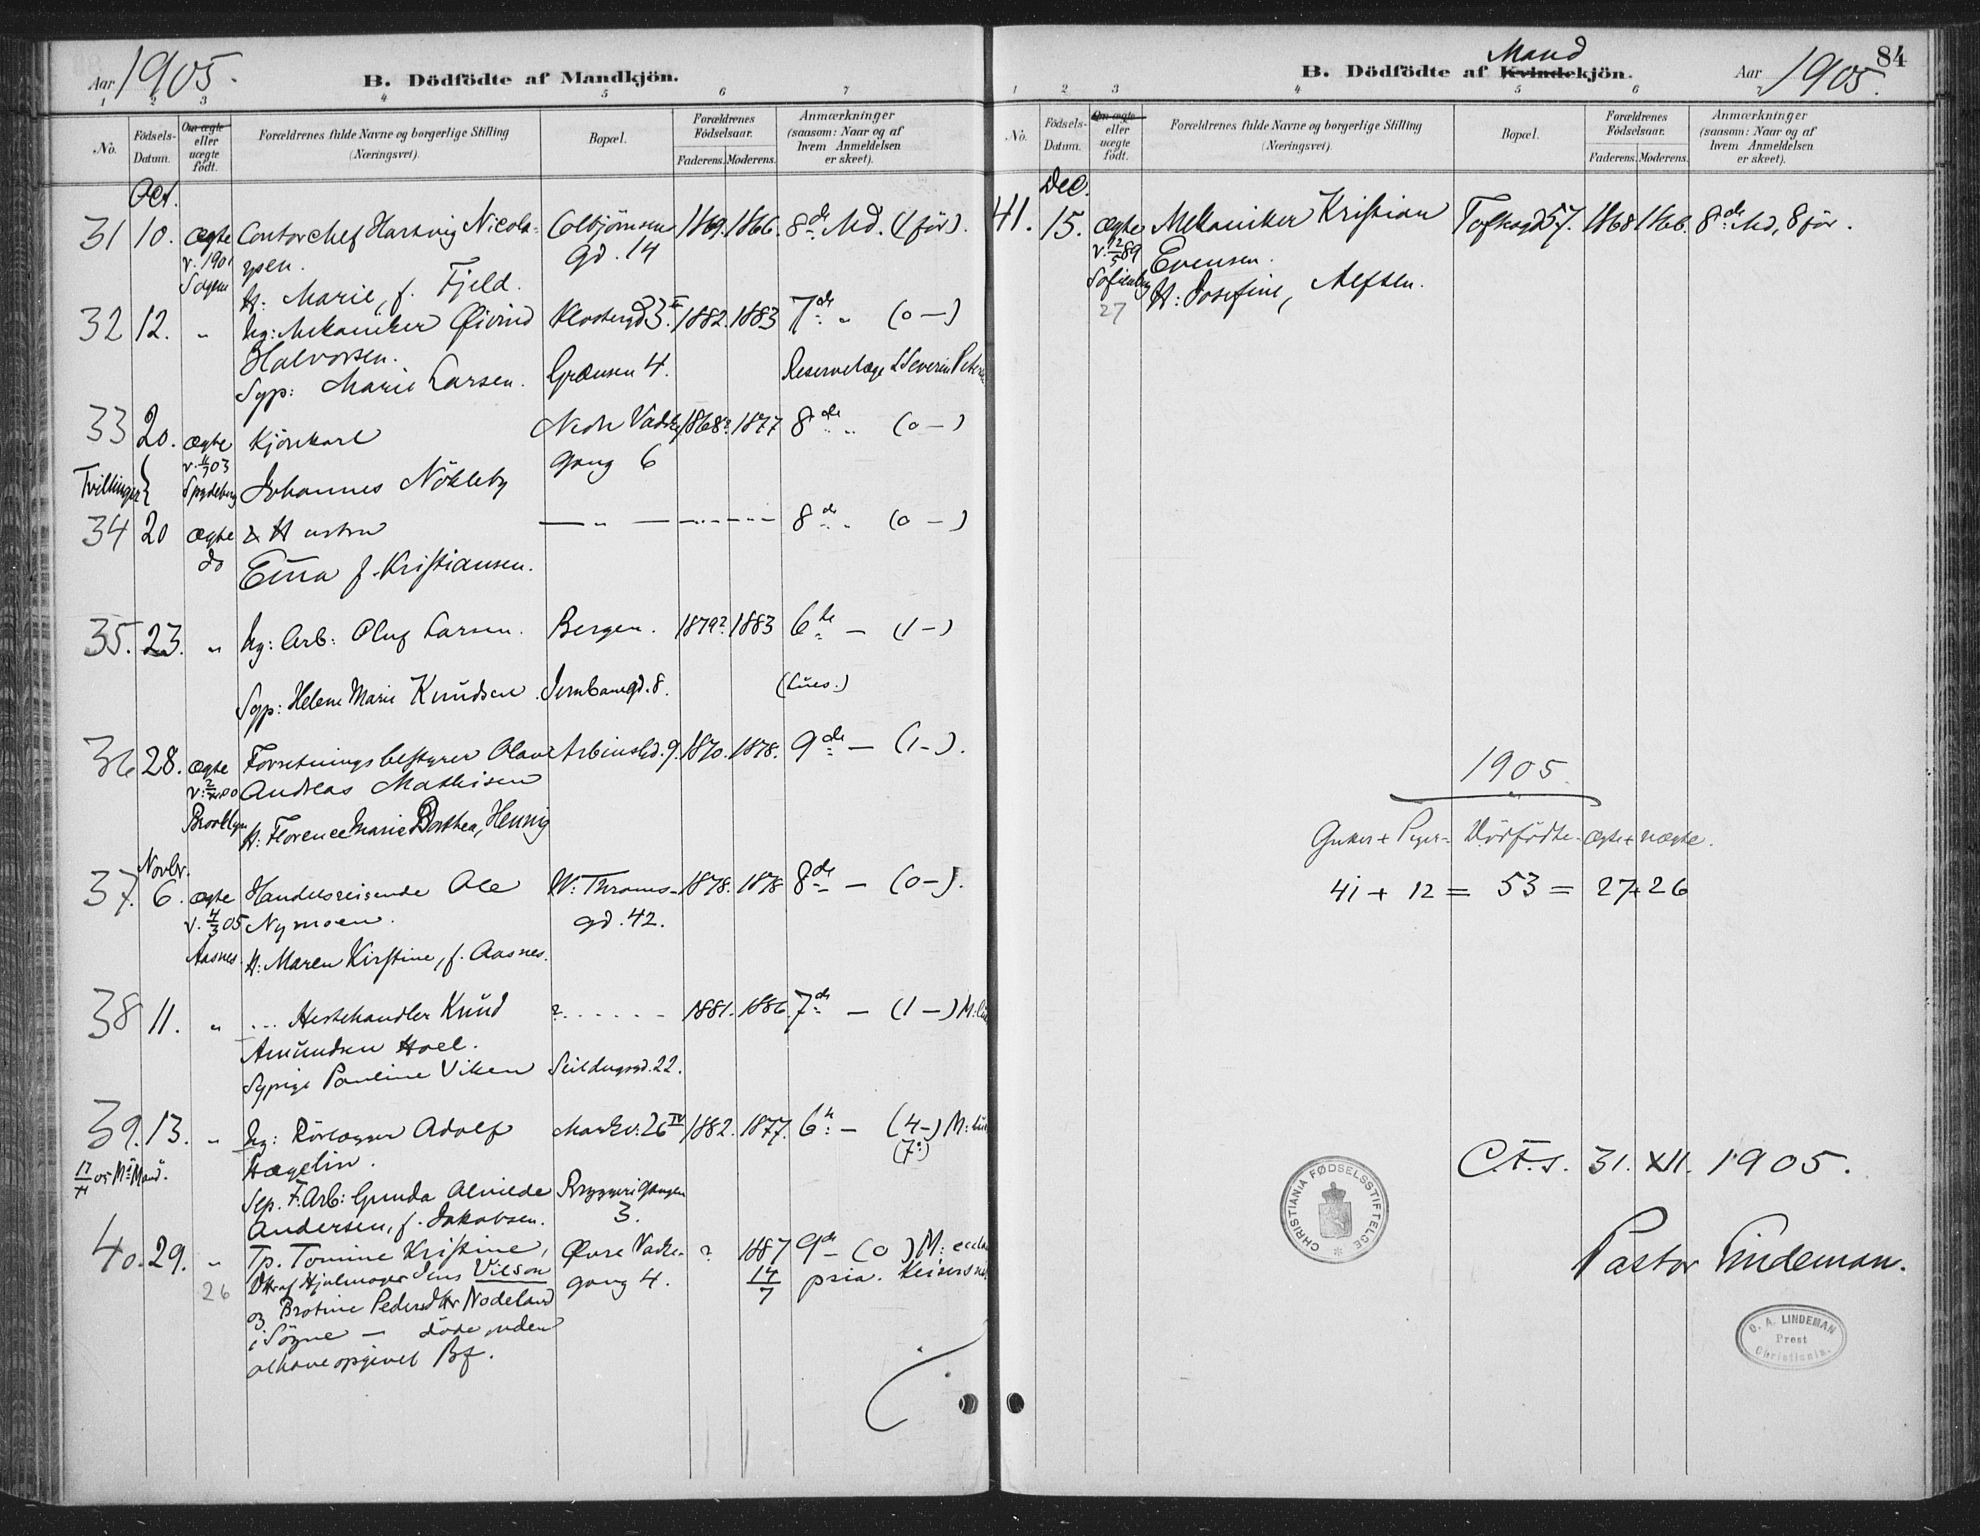 Aar 1905. B. Dödfödte af Mandkjön.
1 2 3 4 5 6 7
No. Födsels-Datum. Om ægte eller uægte födt. Forældrenes fulde Navne og borgerlige Stilling (Næringsvei). Bopæl. Forældrenes Födselsaar. Faderens. Moderens. Anmærkninger (saasom: Naar og af hvem Anmeldelsen er skeet).
Oct.
31 10. ægte Contorchef Hartvig Nicola- Colbjörnsen 1869. 1866. 8de Md. (1 för).
v. 1901 ysen. gd. 14
H: Marie, f. Fjeld.
32 12. " Ug: Mekaniker Øivind Klostergd 3 II 1882. 1883 7de " (0 —)
Halvorsen.
Syp: Marie Larsen. Grænsen 4. Reservelæge Severin
33 20. ægte Kjörekarl Nedre 1868? 1877 8de " (0 —)
v. 03 gang 6
Tvillinger Spydeberg Johannes Nökleby
34 20 ægte & Hustru — " — 8de " (0 —)
do Emma f. Kristiansen.
35. 23. " Ug: Arb: Oluf Larsen. Bergen. 1879? 1883 6te — (1 —)
Syp: Helene Marie Knudsen. Jernbanegd. 8. (Lues.)
36 28. ægte Forretningsbestyrer Olav 9. 1870. 1878. 9de — (1 —).
Andreas Mathisen
Brooklyn H. Florence Marie Dorthea, Hennig
Novbr.
37. 6. ægte Handelsreisende Ole W. Thranes- 1878. 1878 8de — (0 —).
v. 4/3 05 Nymoen. gd. 42.
Aasnes. H: Maren Kirstine, f. Aasnes.
38 11. " ... Hestehandler Knud ? . . . . . . 1881. 1886. 7de — (1 —)
Amundsen Hoel.
Sypige Pauline Viken Seildugsgd. 22.
39. 13. " Ug: Rörlægger Adolf Markv. 26 IV 1882. 1877. 6te — (4 —)
Hægelin. (7:)
Sep. F. Arb: Gunda Alvilde Bryggerigangen
Andersen, f. Jakobsen. 3.
40. 29. " Tp. Tomine Kristine, Øvre ? 1887 9de — (0 )
26 Dtr af Hjulmager Jens Vilson gang 4. 14/7
og Brotine Pedersdtr Nodeland
i Sögne — döde uden
at have opgivet Bf.
84
Mand
B. Dödfödte af Kvindekjön. Aar 1905.
1 2 3 4 5 6 7
No. Födsels-Datum. Om ægte eller uægte födt. Forældrenes fulde Navne og borgerlige Stilling (Næringsvei). Bopæl. Forældrenes Födselsaar. Faderens. Moderens. Anmærkninger (saasom: Naar og af hvem Anmeldelsen er skeet).
Dec.
41. 15. ægte Mekaniker Kristian Toftesgd 57. 1868 1866. 8de Md, 8 för.
v. 12/5 89 Evensen.
Sofienberg H: Josefine, Alfsen.
27
1905.
Gutter + Piger = Dödfödte = ægte + uægte.
41 + 12 = 53 = 27 + 26
C.F.S. 31. XII. 1905.
CHRISTIANIA FØDSELSSTIFTELSE
Pastor Lindeman.
O. A. LINDEMAN
Prest
Christiania.